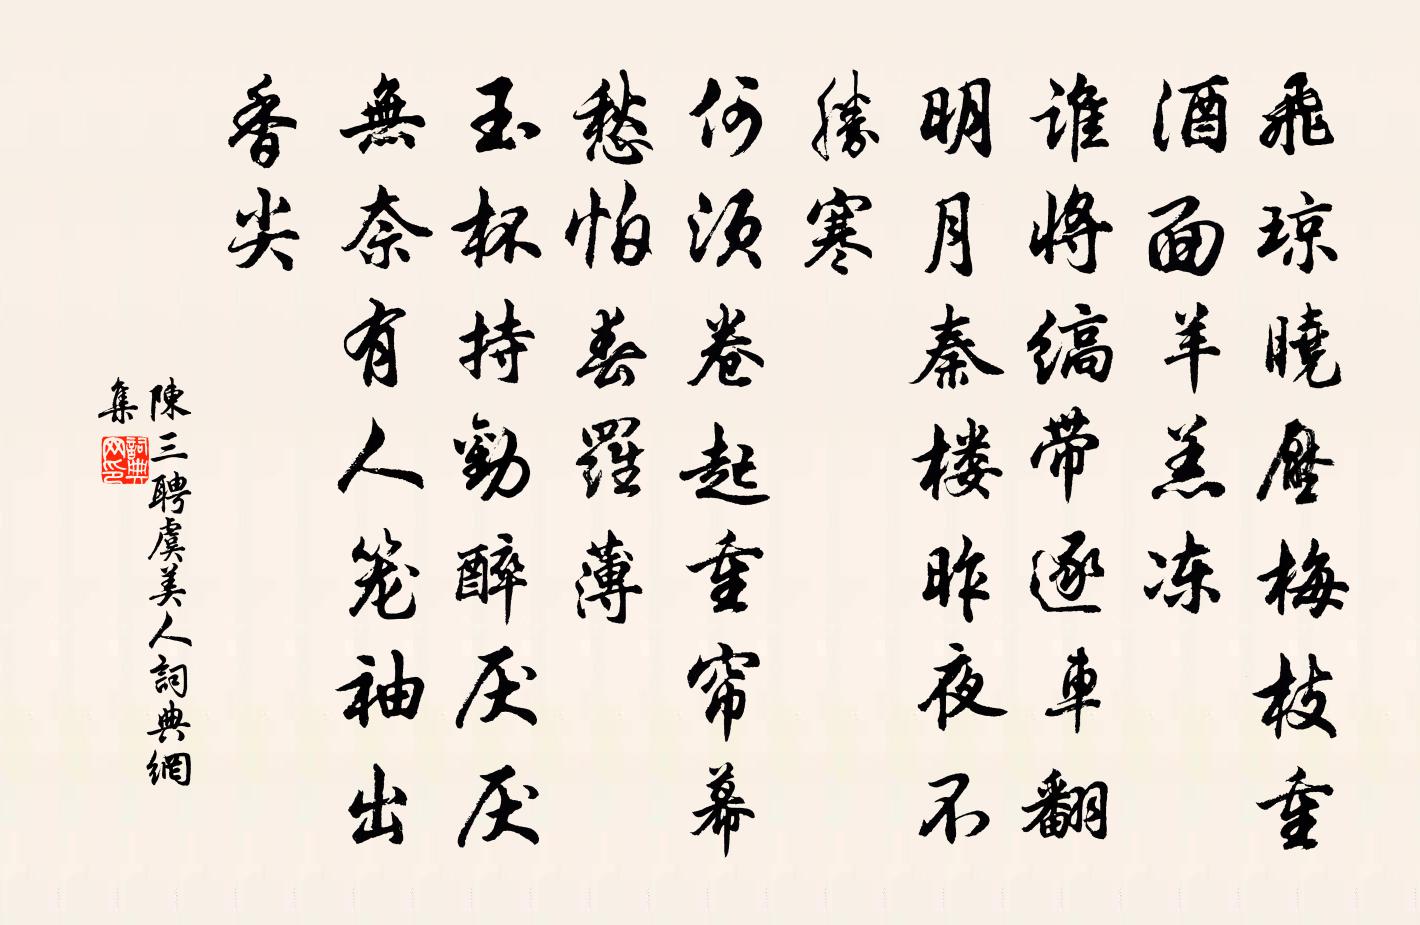 飛琼曉壓梅枝重
酒面羊羔冻
谁將缟带逐車翻
明月秦楼昨夜不
勝寒
何须卷起重帘幕
愁怕春羅薄
玉杯持勸醉厌厌
無奈有人笼袖出
香尖
陳三聘虞美人詞典網
集
詞典
网印